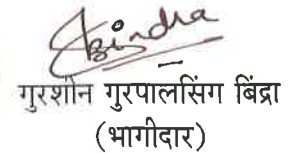 Bindra
गुरशीन गुरपालसिंग बिंद्रा
(भागीदार)